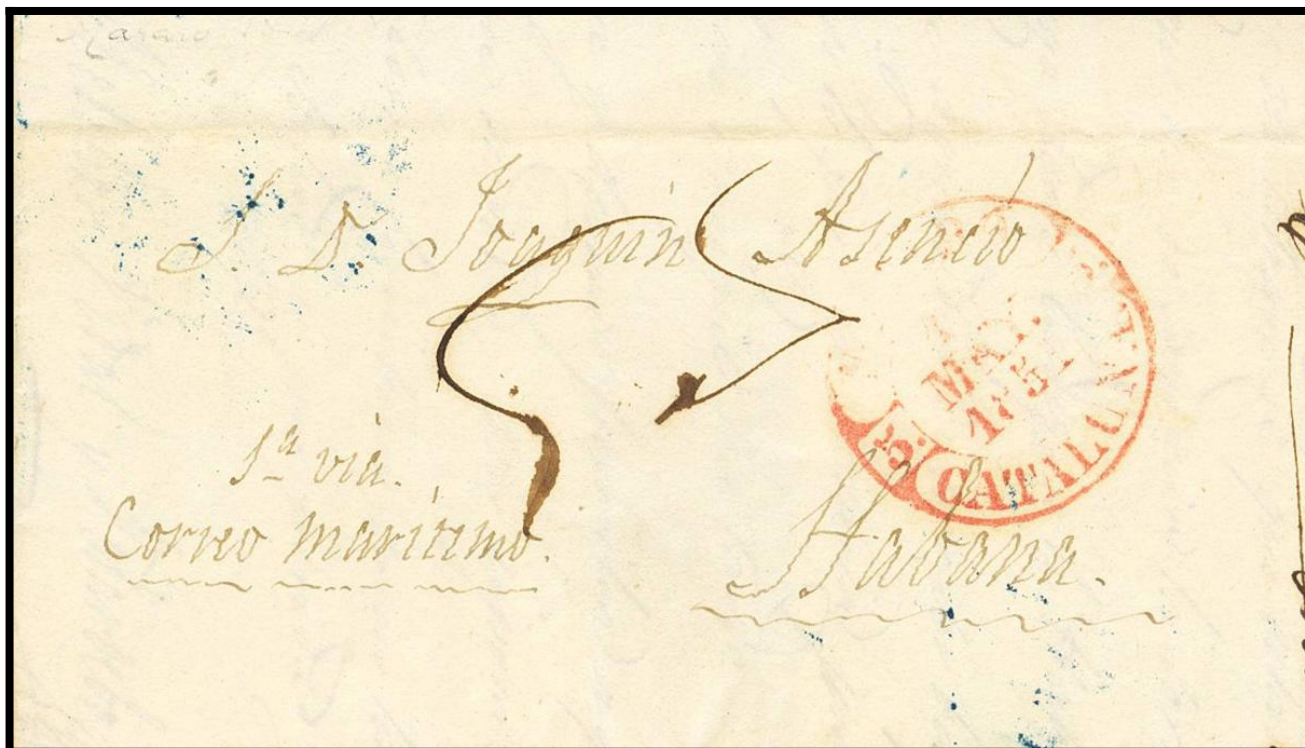 S. D. Joaquin Asencio
MAY.
185
CATALUÑA
1ª via.
Correo maritimo.
Habana.